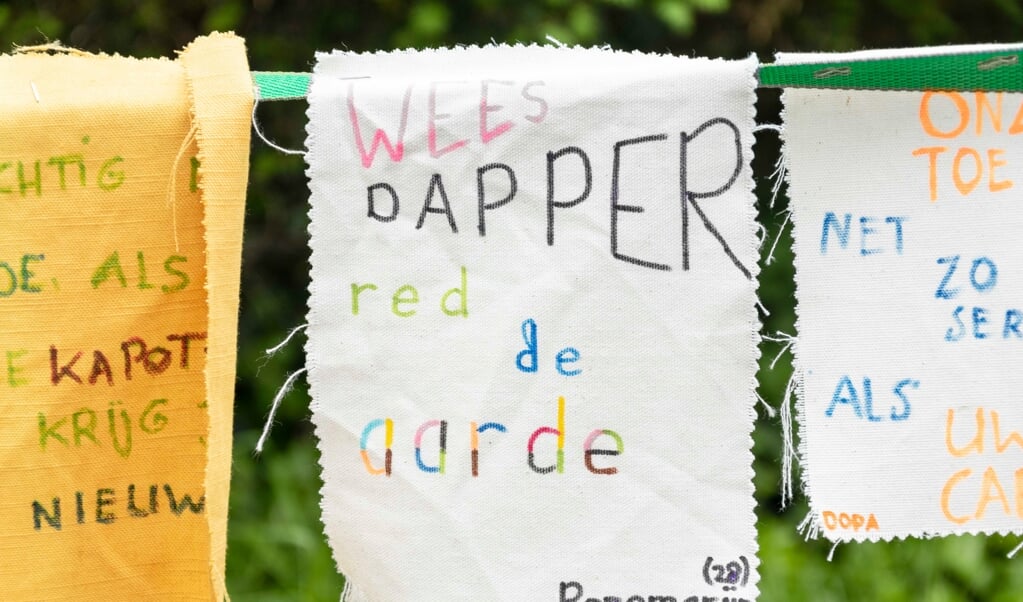 CHTIG
DE. ALS
E KAPOT
KRIJG
NIEUW
WEES
DAPPER
red
de
aarde
(28)
TOE
NET
ZO
SER
ALS
UW
DOPA